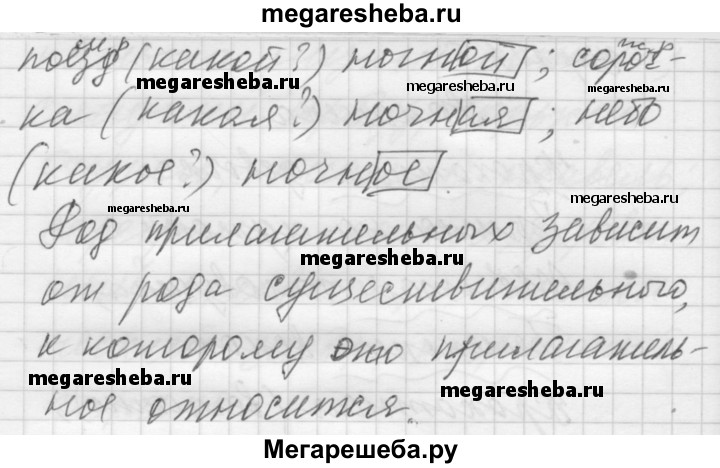 megaresheba.ru
м.р. ж.р.
поезд (какой?) ночной; соро-
megaresheba.ru megaresheba.ru
ка (какая?) ночная; небо
(какое?) ночное.
megaresheba.ru megaresheba.ru
Род прилагательных зависит
megaresheba.ru
от рода существительного,
к которому это прилагатель-
megaresheba.ru megaresheba.ru
ное относится.
Мегарешеба.ру